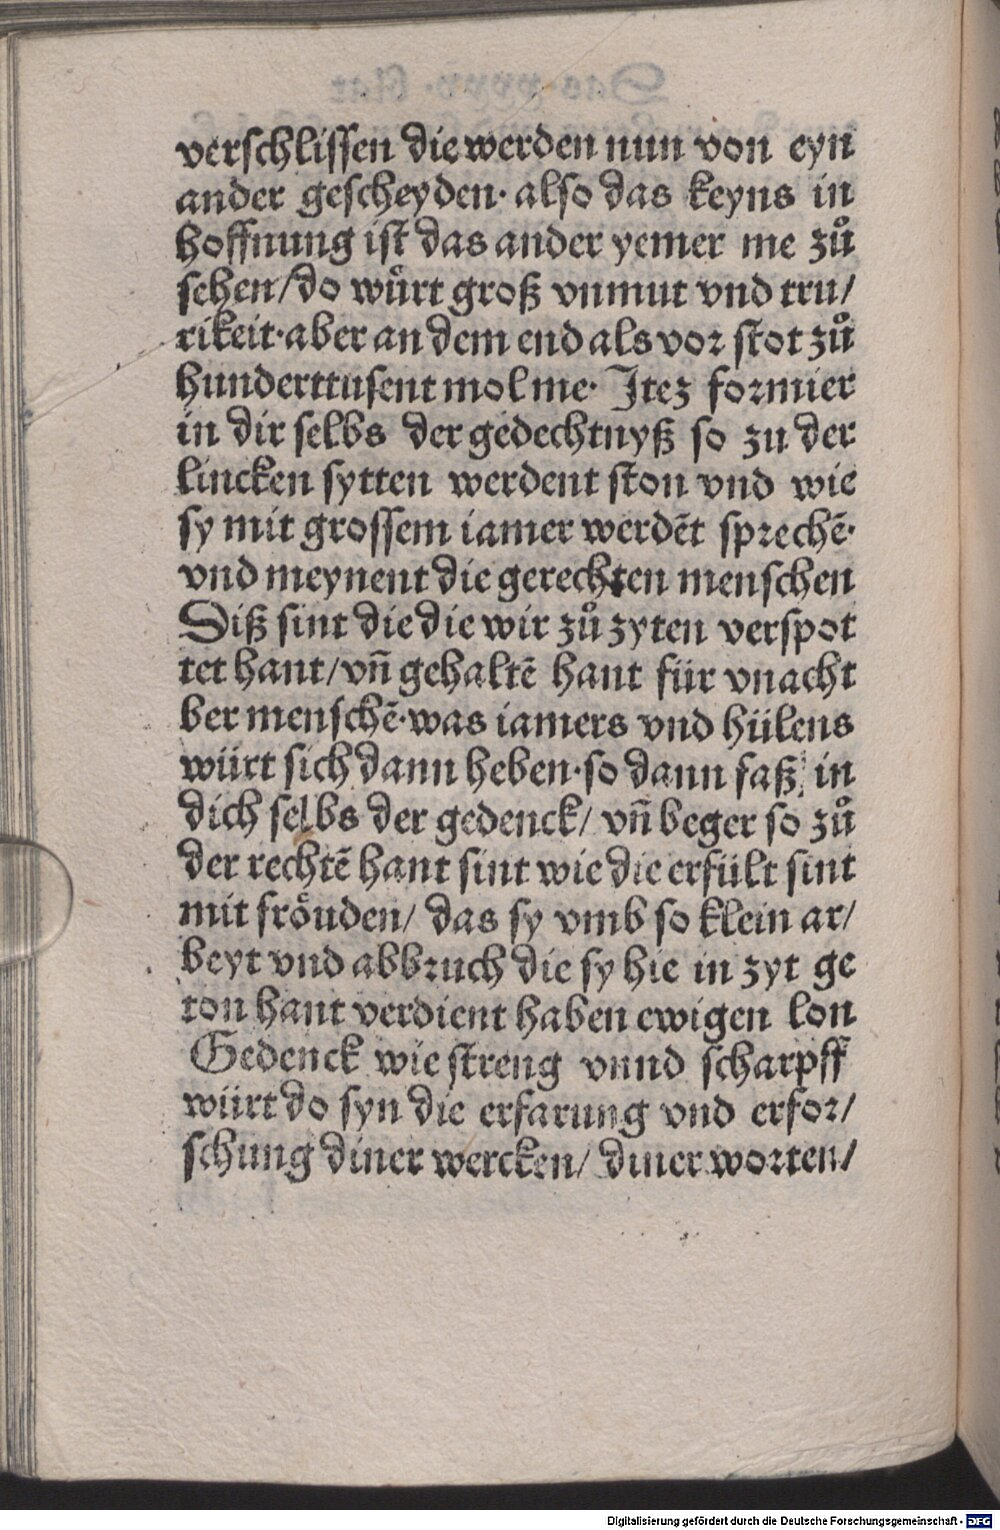 verschlissen die werden nun von eyn
ander gescheyden· also das keyns in
hoffnung ist das ander yemer me zuͦ
sehen/do wuͤrt groß vnmut vnd tru/
rikeit·aber an dem end als vor stot zuͦ
hunderttusent mol me· Itez formier
in dir selbs der gedechtnyß so zu der
lincken sytten werdent ston vnd wie
sy mit grossem iamer werdēt sprechē·
vnd meynent die gerechten menschen
Diß sint die die wir zuͦ zyten verspot
tet hant/vn̄ gehaltē hant für vnacht
ber menschē·was iamers vnd hülens
würt sich dann heben·so dann faß in
dich selbs der gedenck/ vn̄ beger so zuͦ
der rechtē hant sint wie die erfült sint
mit froͤuden/ das sy vmb so klein ar/
beyt vnd abbruch die sy hie in zyt ge
ton hant verdient haben ewigen lon
Gedenck wie streng vnnd scharpff
würt do syn die erfarung vnd erfor/
schung diner wercken/ diner worten/
Digitalisierung gefördert durch die Deutsche Forschungsgemeinschaft - DFG